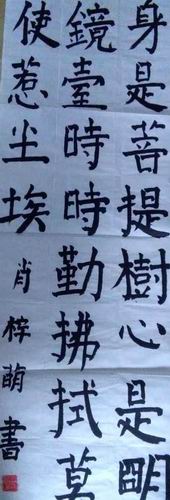 身是菩提樹心是明
鏡臺時時勤拂拭莫
使惹尘埃
肖梓萌書